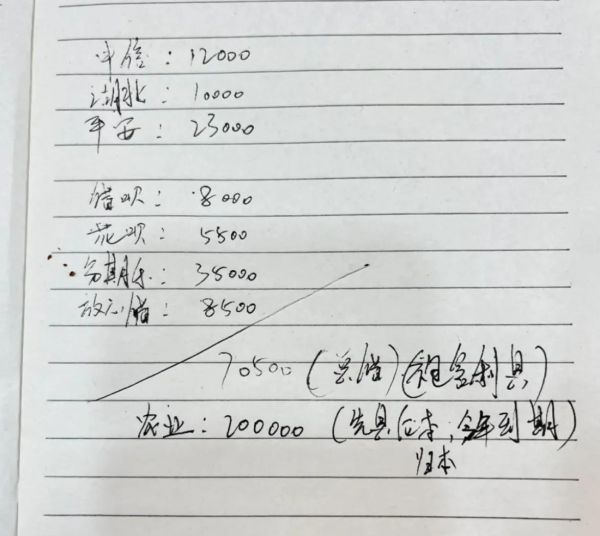 中信：12000
湖北：10000
平安：23000
借呗：8000
花呗：5500
分期乐：35000
放心借：8500
70500（总借）（利息）
农业：200000（先息后本；今年到期
归本）